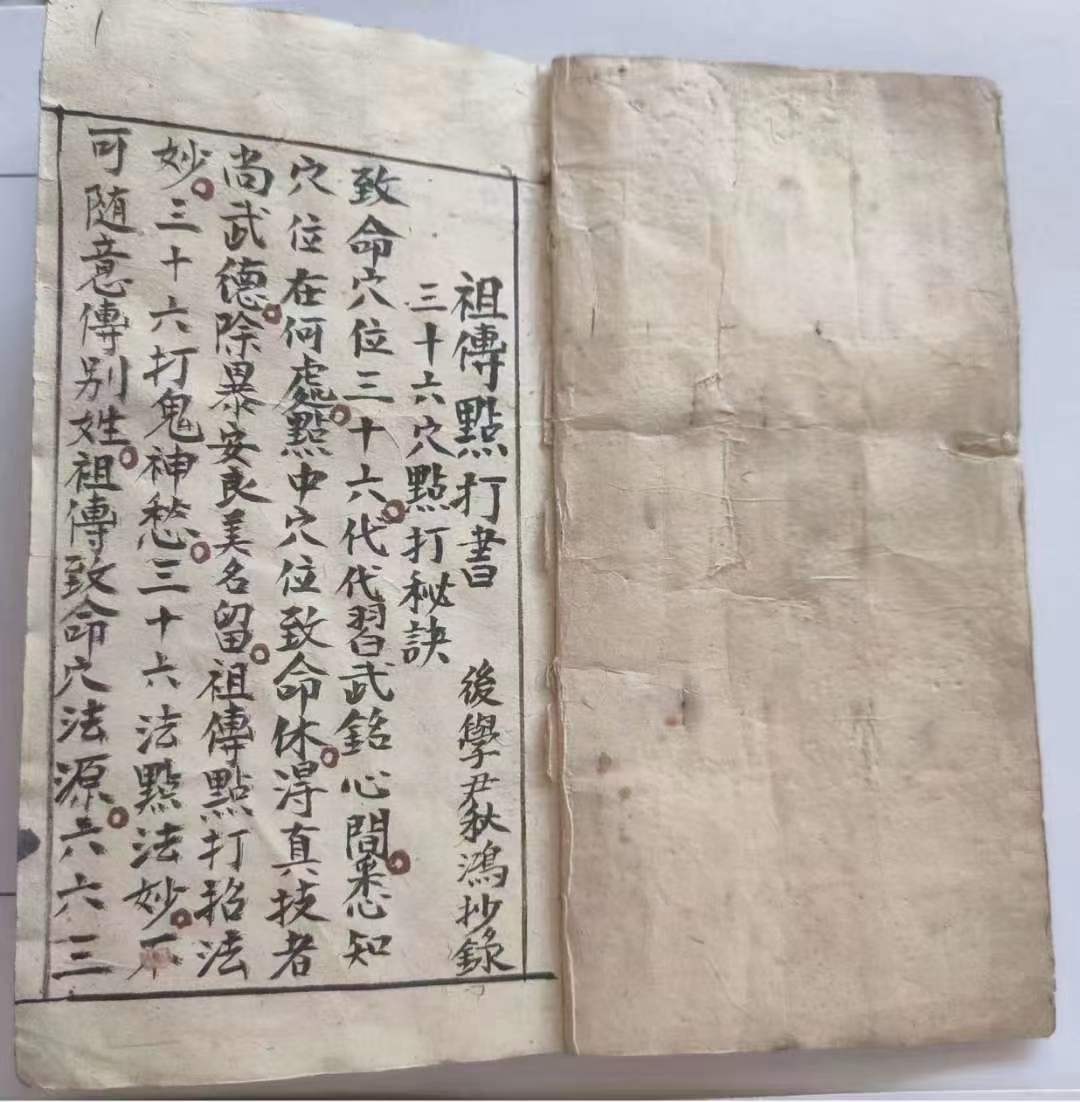 祖傳點打書 後學尹秋鴻抄錄
三十六穴點打秘訣
致命穴位三十六。代代習武銘心間。悉知
穴位在何處。點中穴位致命休。淂真技者
尚武德。除暴安良美名留。祖傳點打招法
妙。三十六打鬼神愁。三十六法點法妙。不
可随意傳别姓。祖傳致命穴法源。六六三